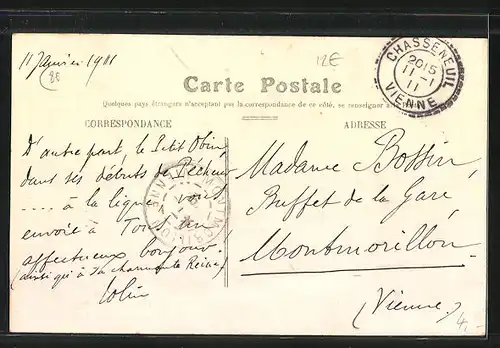 11 Janvier 1911
8E
12E
CHASSENEUIL
2015
11-1
11
VIENNE
Carte Postale
Quelques pays étrangers n'acceptent pas la correspondance de ce côté, se renseigner à
CORRESPONDANCE
ADRESSE
D'autre part, le Petit Obin,
dans ses débuts de Pêcheur
.... à la ligne, vous
envoie à Tous un
affectueux bonjour.
(ainsi qu'à sa charmante Reine)
Madame Bossin,
Buffet de la Gare
Montmorillon.
(Vienne)
4,-